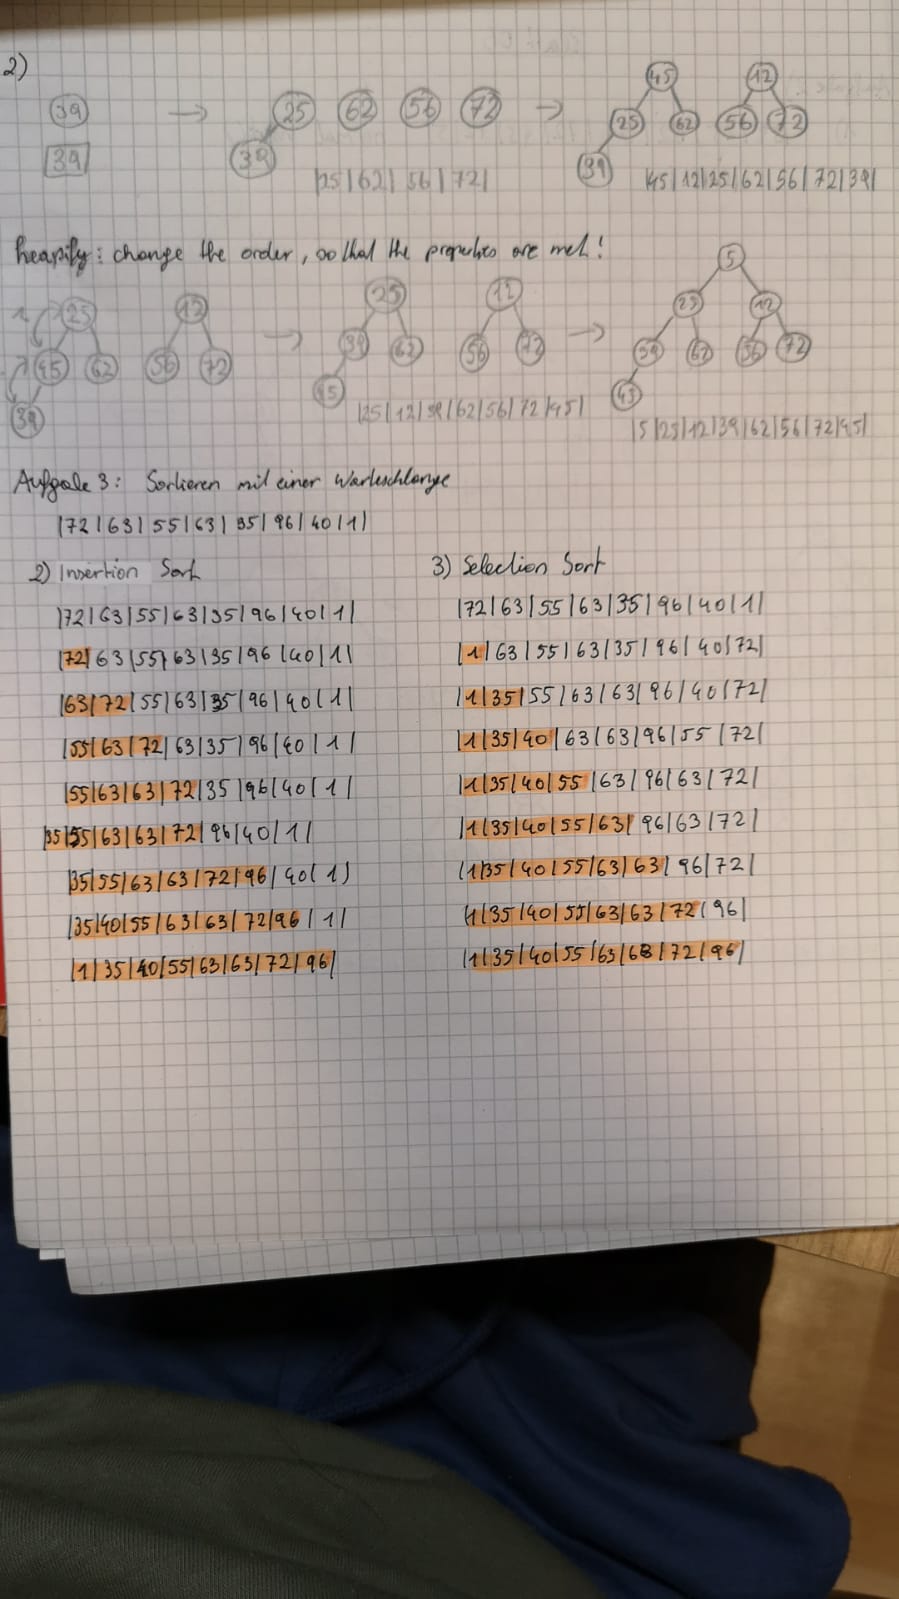 2)
39 → 25 62 56 72 → 45 12
25 62 56 72
39 39 39
|25|62|56|72|
|45|12|25|62|56|72|39|
heapify: change the order, so that the properties are met!
5
25 12 25 12 25 12
→ →
45 62 56 72 39 62 56 72 39 62 56 72
39 45 45
|25|12|39|62|56|72|45|
|5|25|12|39|62|56|72|45|
Aufgabe 3: Sortieren mit einer Warteschlange
|72|63|55|63|35|96|40|1|
2) Insertion Sort
|72|63|55|63|35|96|40|1|
|72|63|55|63|35|96|40|1|
|63|72|55|63|35|96|40|1|
|55|63|72|63|35|96|40|1|
|55|63|63|72|35|96|40|1|
|35|55|63|63|72|96|40|1|
|35|55|63|63|72|96|40|1|
|35|40|55|63|63|72|96|1|
|1|35|40|55|63|63|72|96|
3) Selection Sort
|72|63|55|63|35|96|40|1|
|1|63|55|63|35|96|40|72|
|1|35|55|63|63|96|40|72|
|1|35|40|63|63|96|55|72|
|1|35|40|55|63|96|63|72|
|1|35|40|55|63|96|63|72|
|1|35|40|55|63|63|96|72|
|1|35|40|55|63|63|72|96|
|1|35|40|55|63|63|72|96|